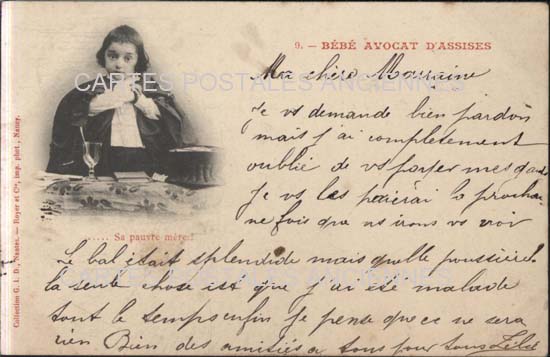 9. — BÉBÉ AVOCAT D'ASSISES
CARTES POSTALES ANCIENNES
Ma chère Marraine
Je vs demande bien pardon
mais j'ai complètement
oublié de vs porter mes
Je vs les
ne fois que ns irons vs voir
..... Sa pauvre mère !
Le bal était splendide mais quelle poussière
CARTES POSTALES ANCIENNES
la seule chose est que j'ai été malade
tout le temps enfin je pense que ce ne sera
rien Bien des amitiés à tous pour tous
Collection G. I. D., Nantes. — Royer et Cie, imp. phot., Nancy.